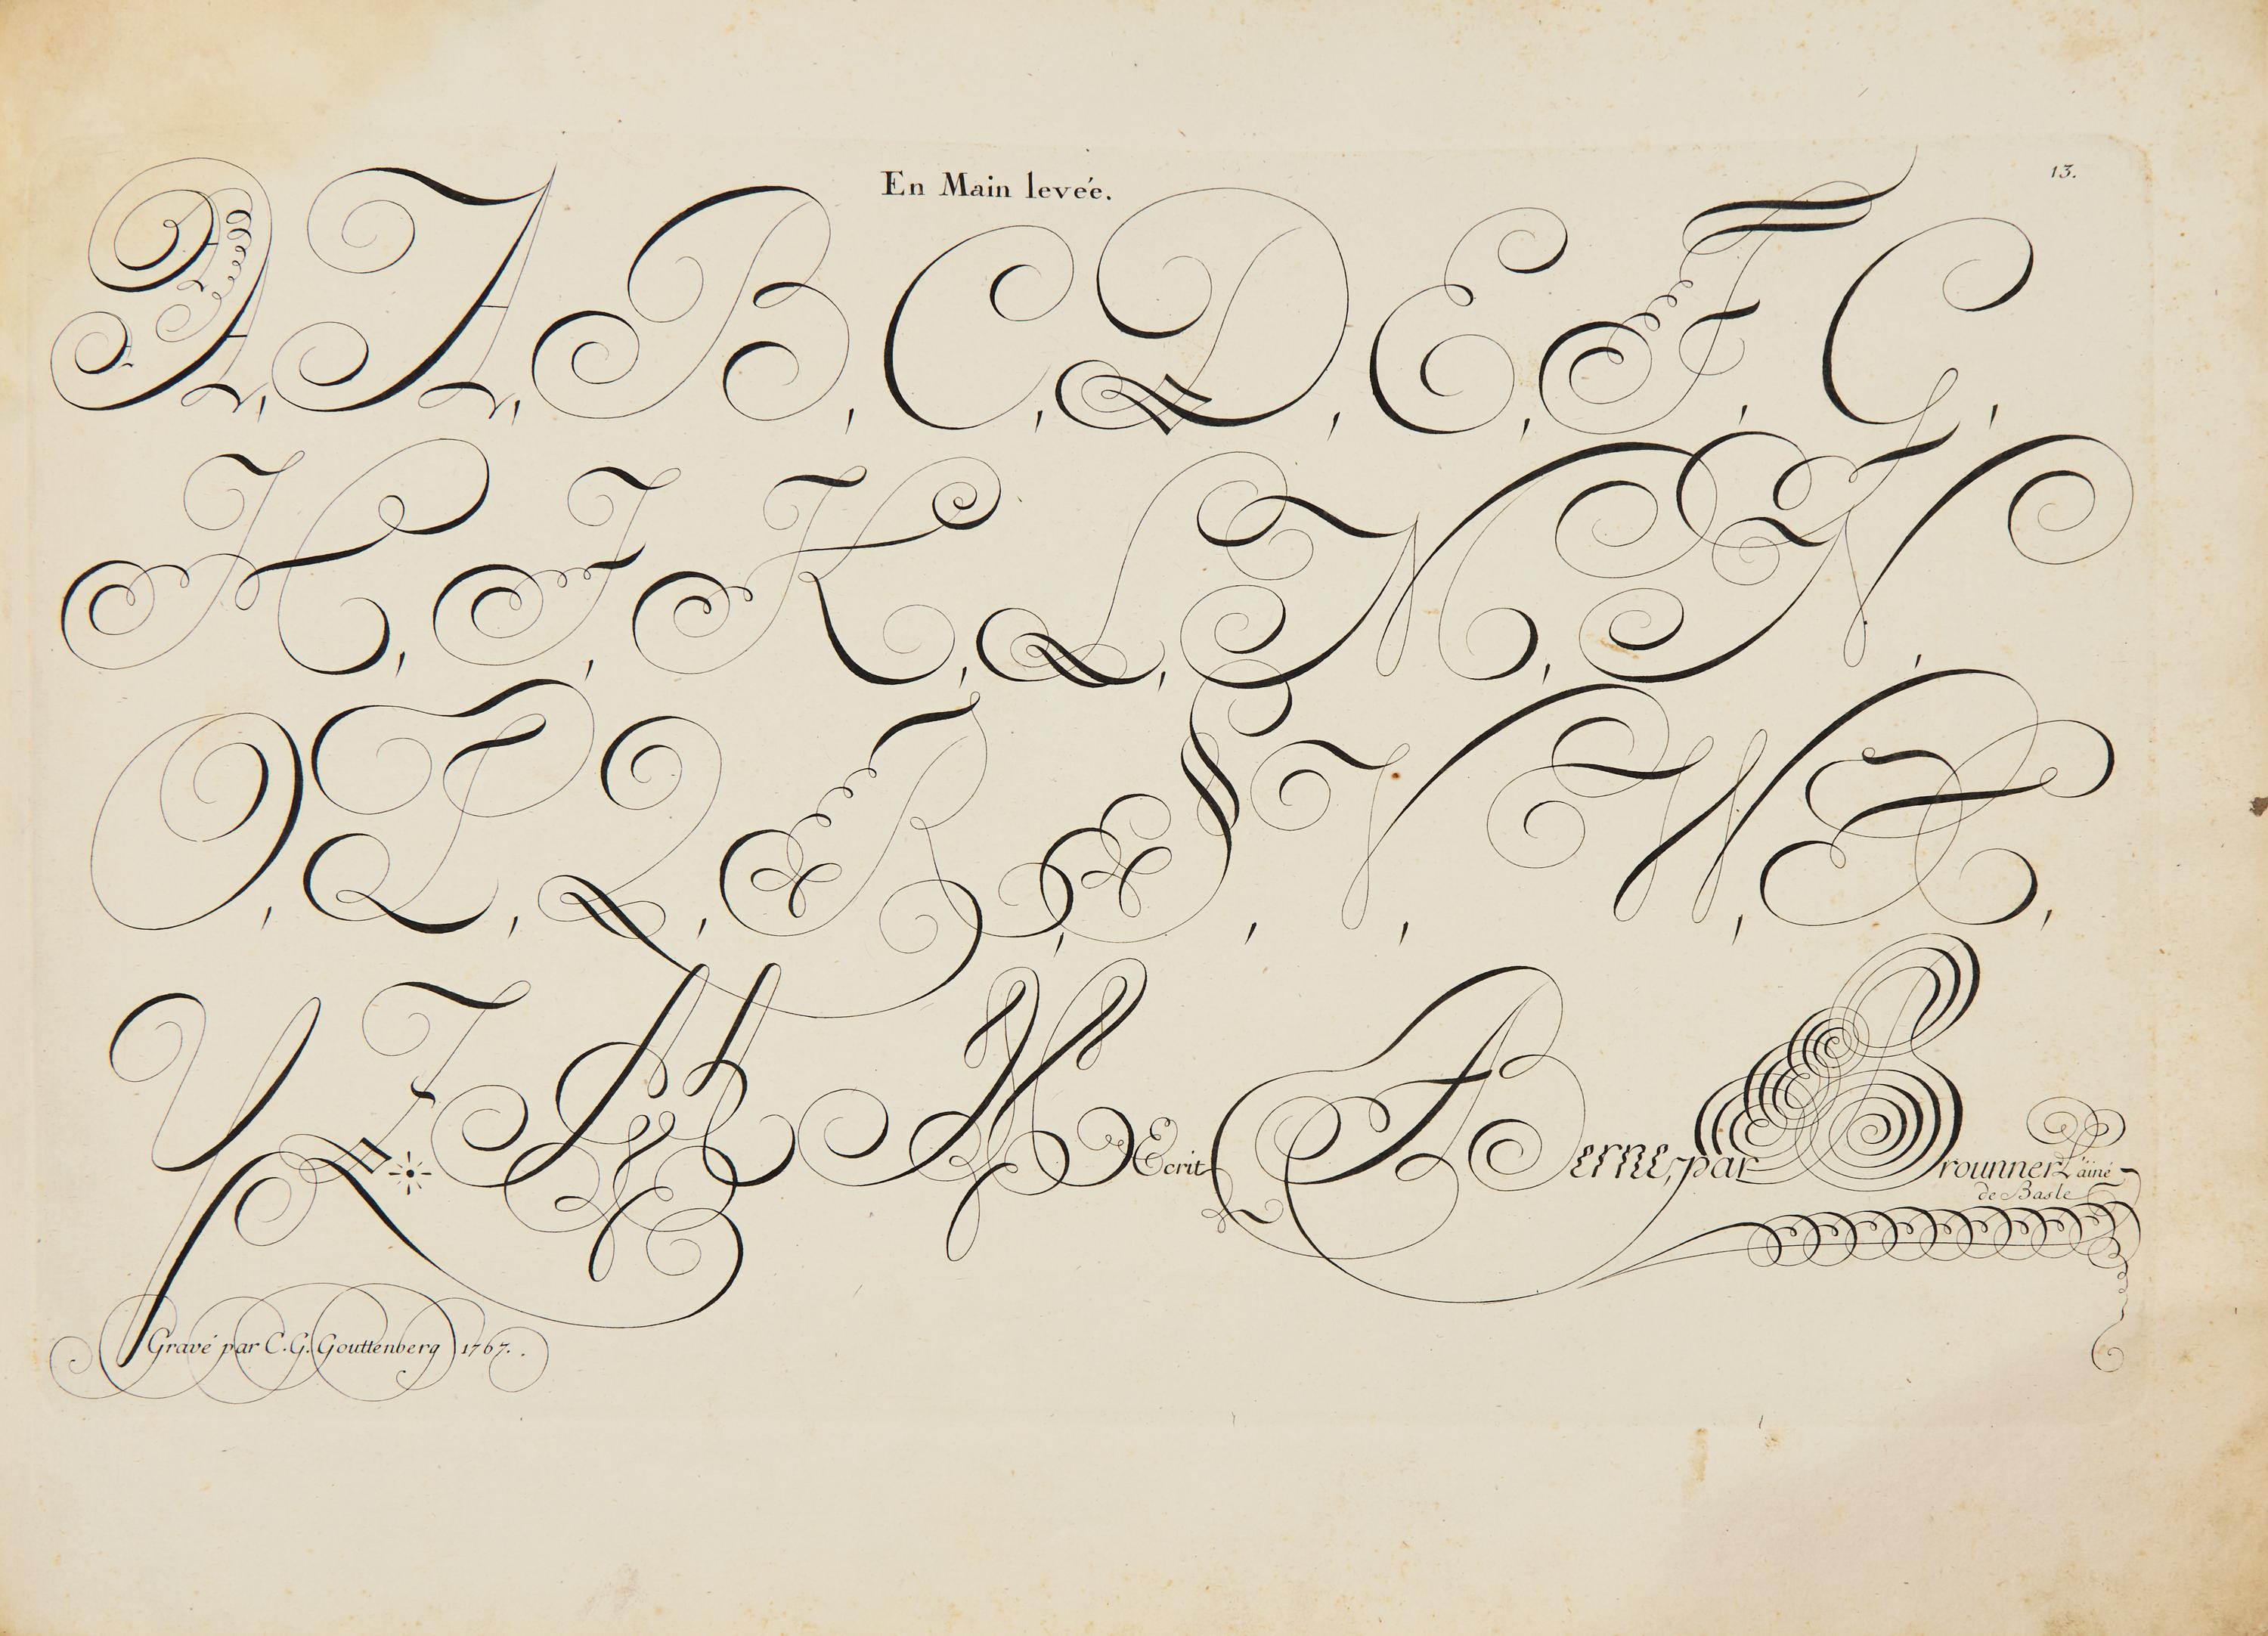 En Main levée.
13.
A, A, B, C, D, E, F, G,
H, I, K, L, M, N,
O, P, Q, R, S, V, W, X,
Y Z Ecrit A Berne, par Brounner L'ainé
de Basle
Gravé par C. G. Gouttenberg 1767.